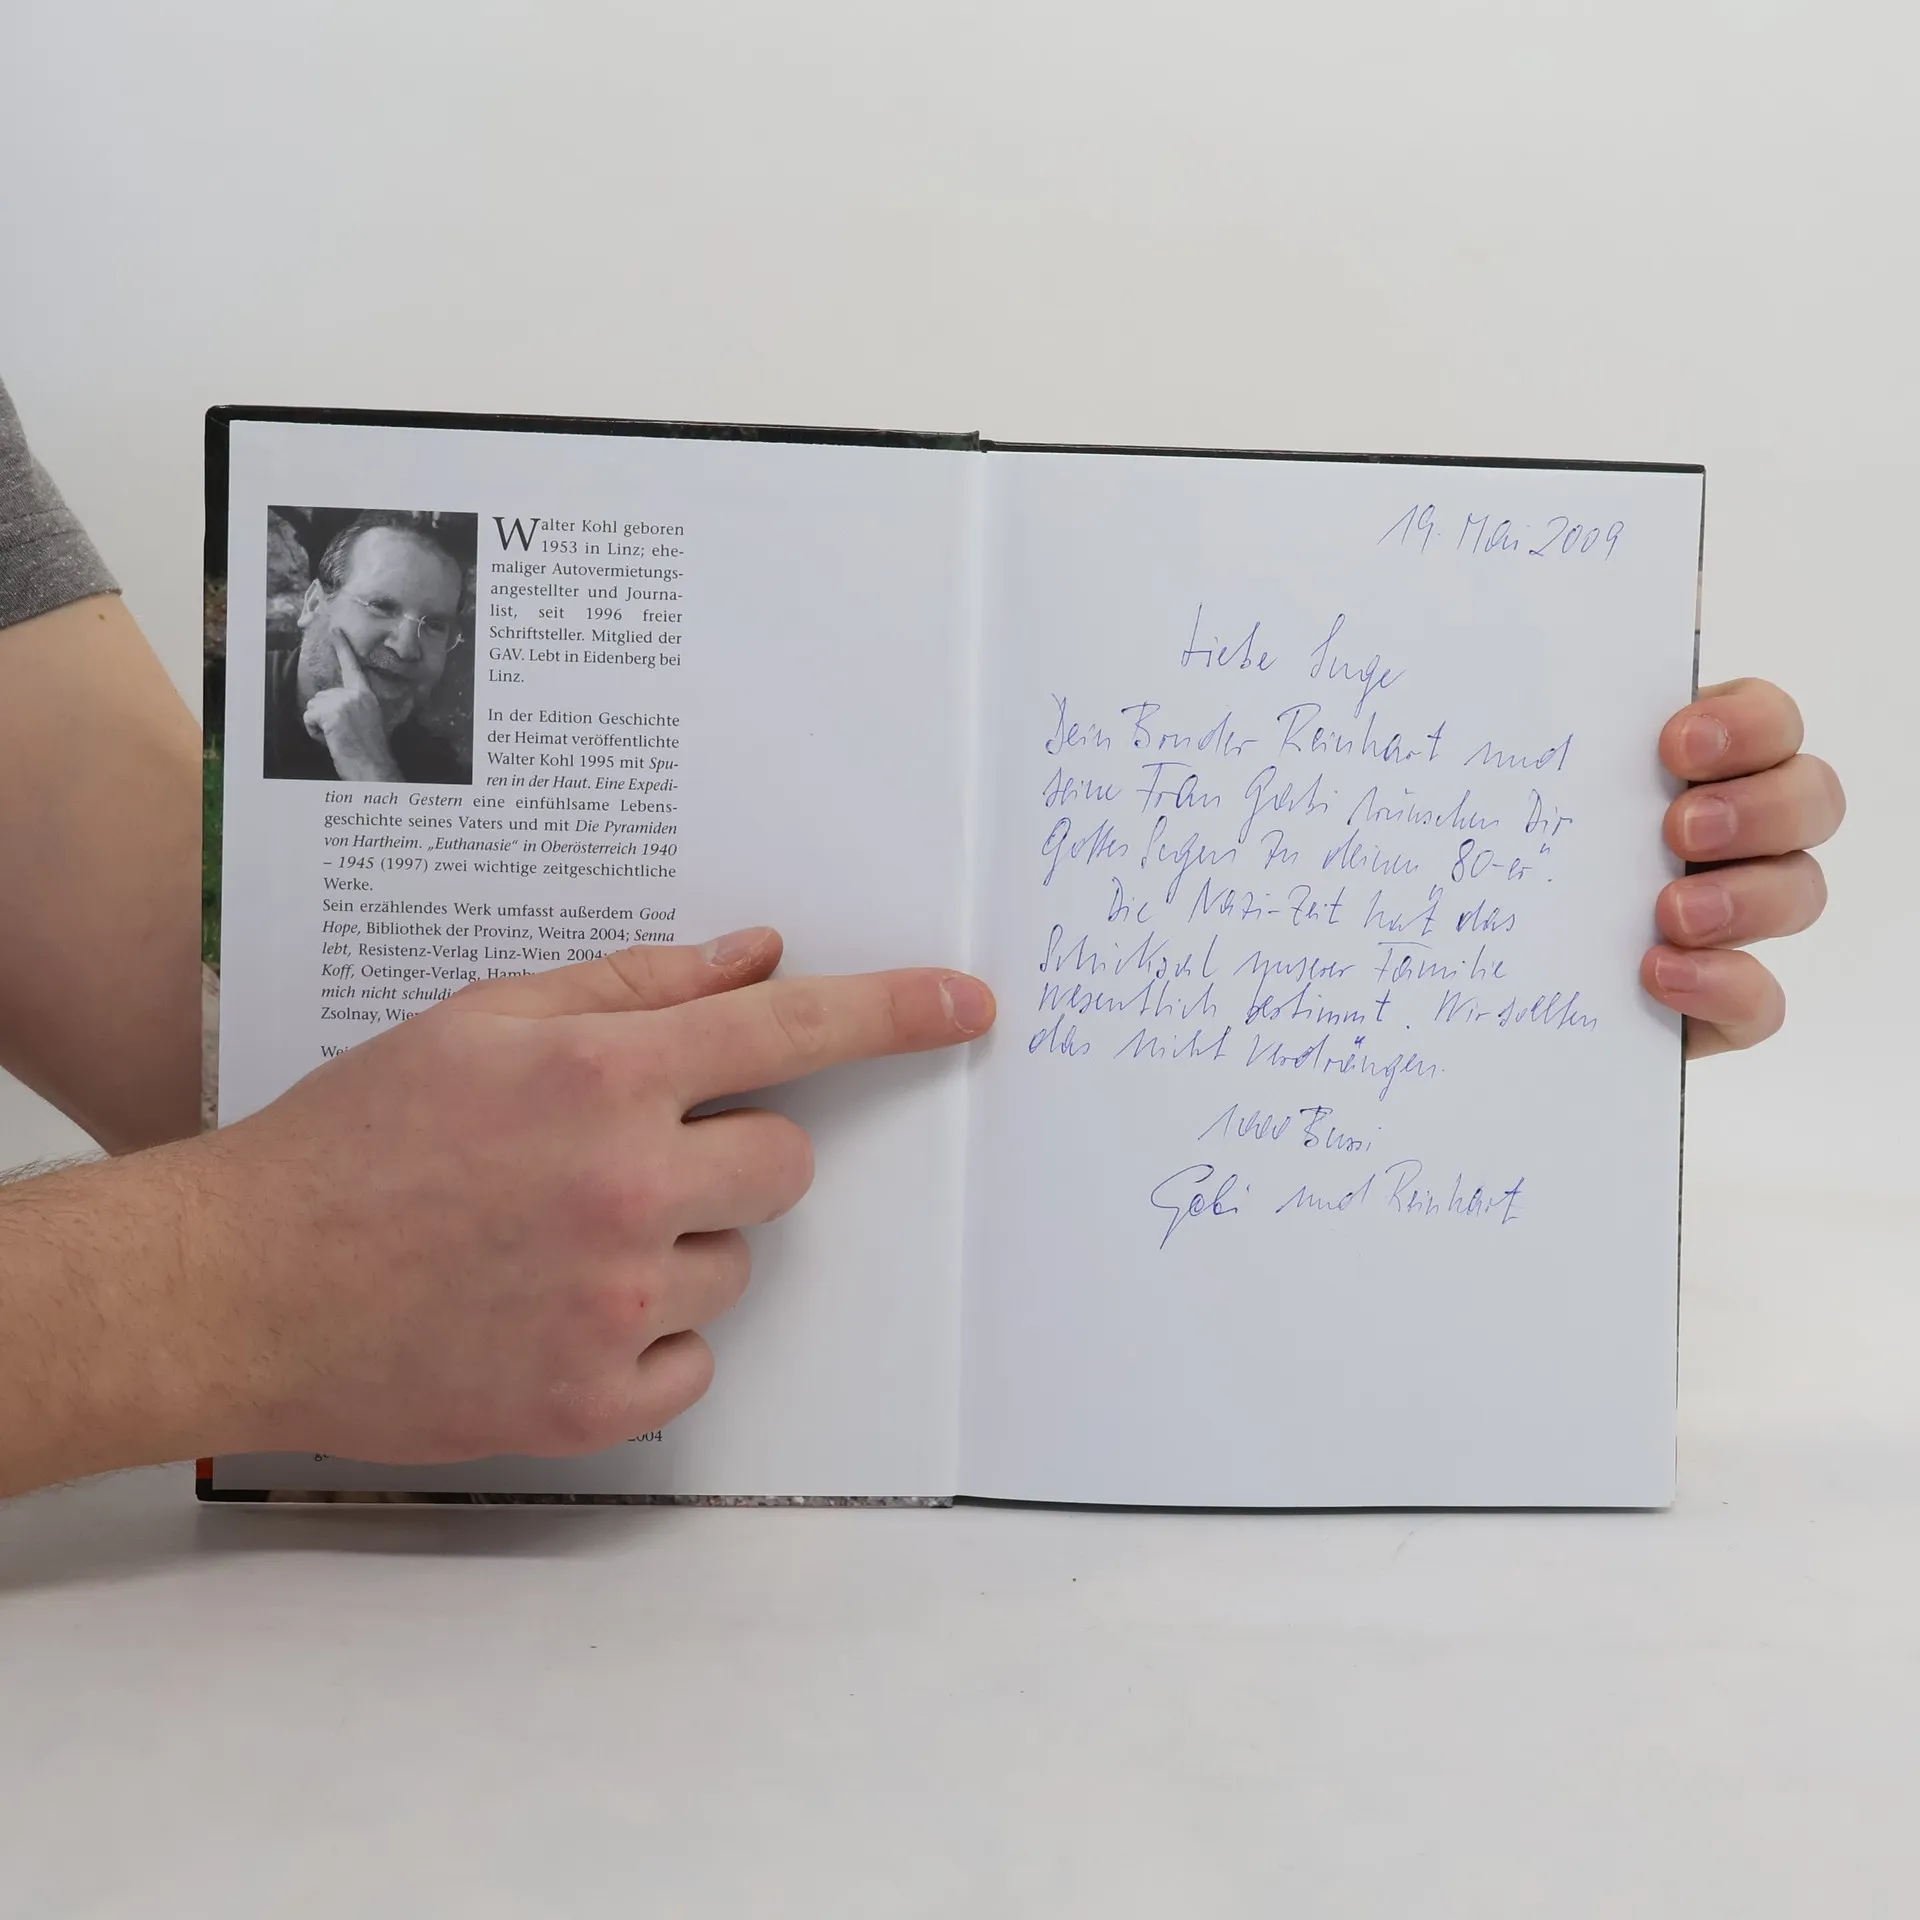 Walter Kohl geboren
1953 in Linz; ehe-
maliger Autovermietungs-
angestellter und Journa-
list, seit 1996 freier
Schriftsteller. Mitglied der
GAV. Lebt in Eidenberg bei
Linz.
In der Edition Geschichte
der Heimat veröffentlichte
Walter Kohl 1995 mit Spu-
ren in der Haut. Eine Expedi-
tion nach Gestern eine einfühlsame Lebens-
geschichte seines Vaters und mit Die Pyramiden
von Hartheim. „Euthanasie“ in Oberösterreich 1940
– 1945 (1997) zwei wichtige zeitgeschichtliche
Werke.
Sein erzählendes Werk umfasst außerdem Good
Hope, Bibliothek der Provinz, Weitra 2004; Senna
lebt, Resistenz-Verlag Linz-Wien 2004;
Koff, Oetinger-Verlag,
mich nicht
Zsolnay,
2004
19. Mai 2009
Liebe Inge
Dein Bruder Reinhart und
seine Frau Gabi wünschen Dir
Gottes Segen zu deinen "80-er".
Die Nazi-Zeit hat das
Schicksal unserer Familie
wesentlich bestimmt. Wir sollten
das nicht verdrängen.
1000 Bussi
Gabi und Reinhart